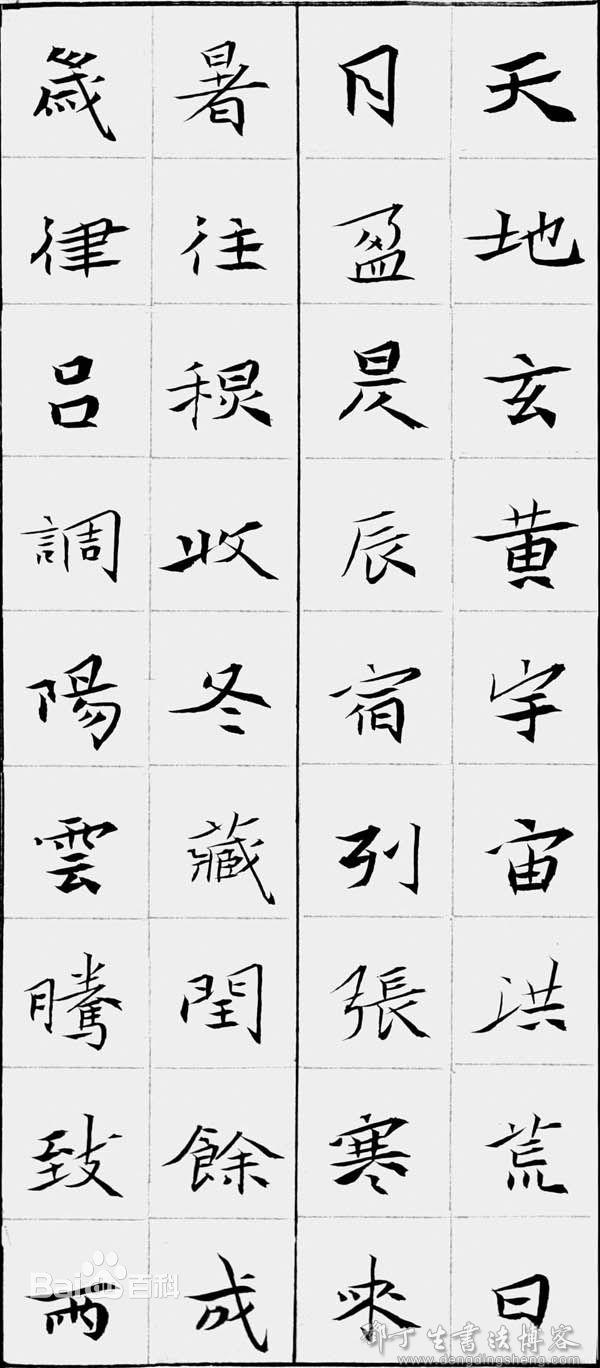 天地玄黄宇宙洪荒日
月盈昃辰宿列張寒來
暑往秋收冬藏閏餘成
歲律吕調陽雲騰致雨
Bai百科
邓丁生書法博客
www.dengdingsheng.com